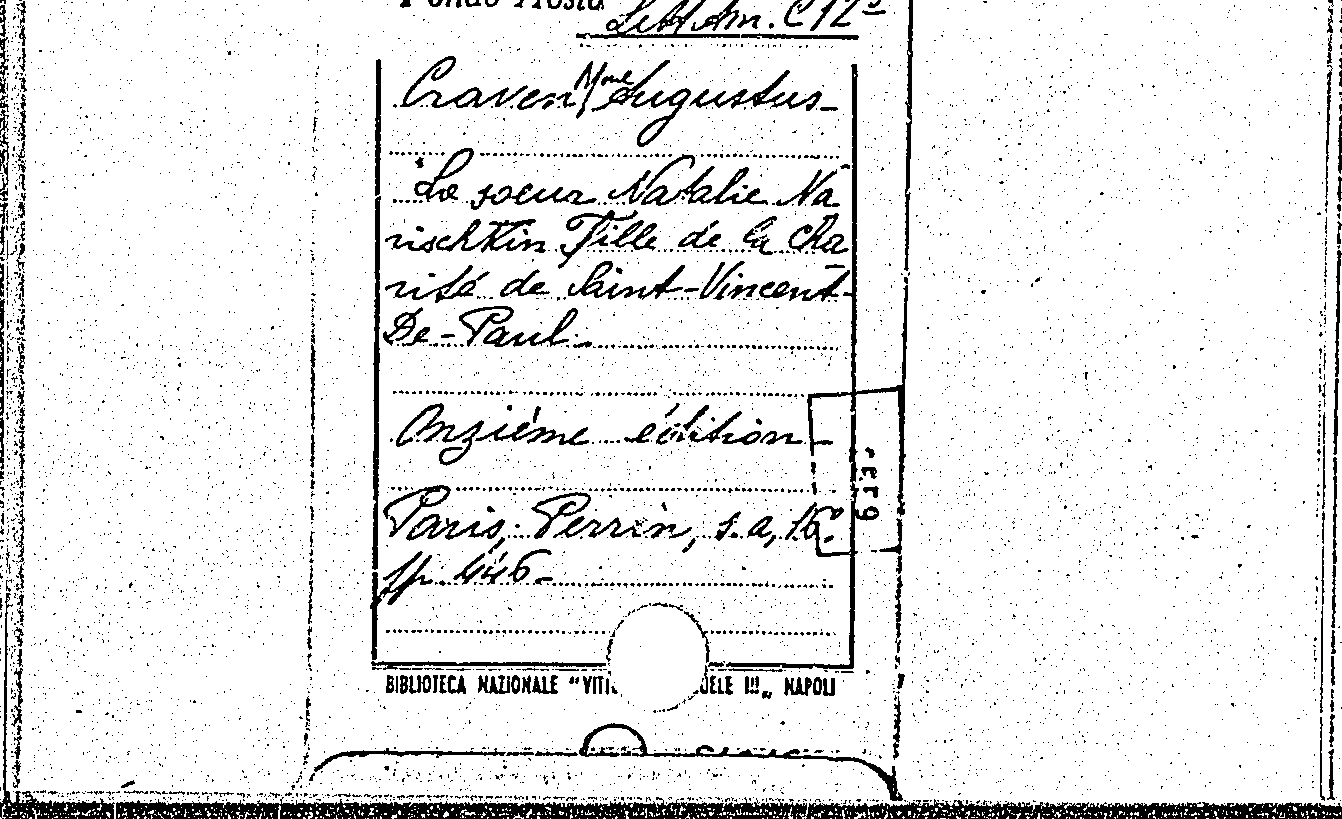 Lett. Am. C 12
Craven Mme Augustus-
La soeur Natalie Na
rischkin Fille de la Cha
rité de Saint-Vincent-
De-Paul-
Onzième édition-
Paris, Perrin, s.a, 16°
pp. 446-
BIBLIOTECA NAZIONALE "VITT UELE III„ NAPOLI